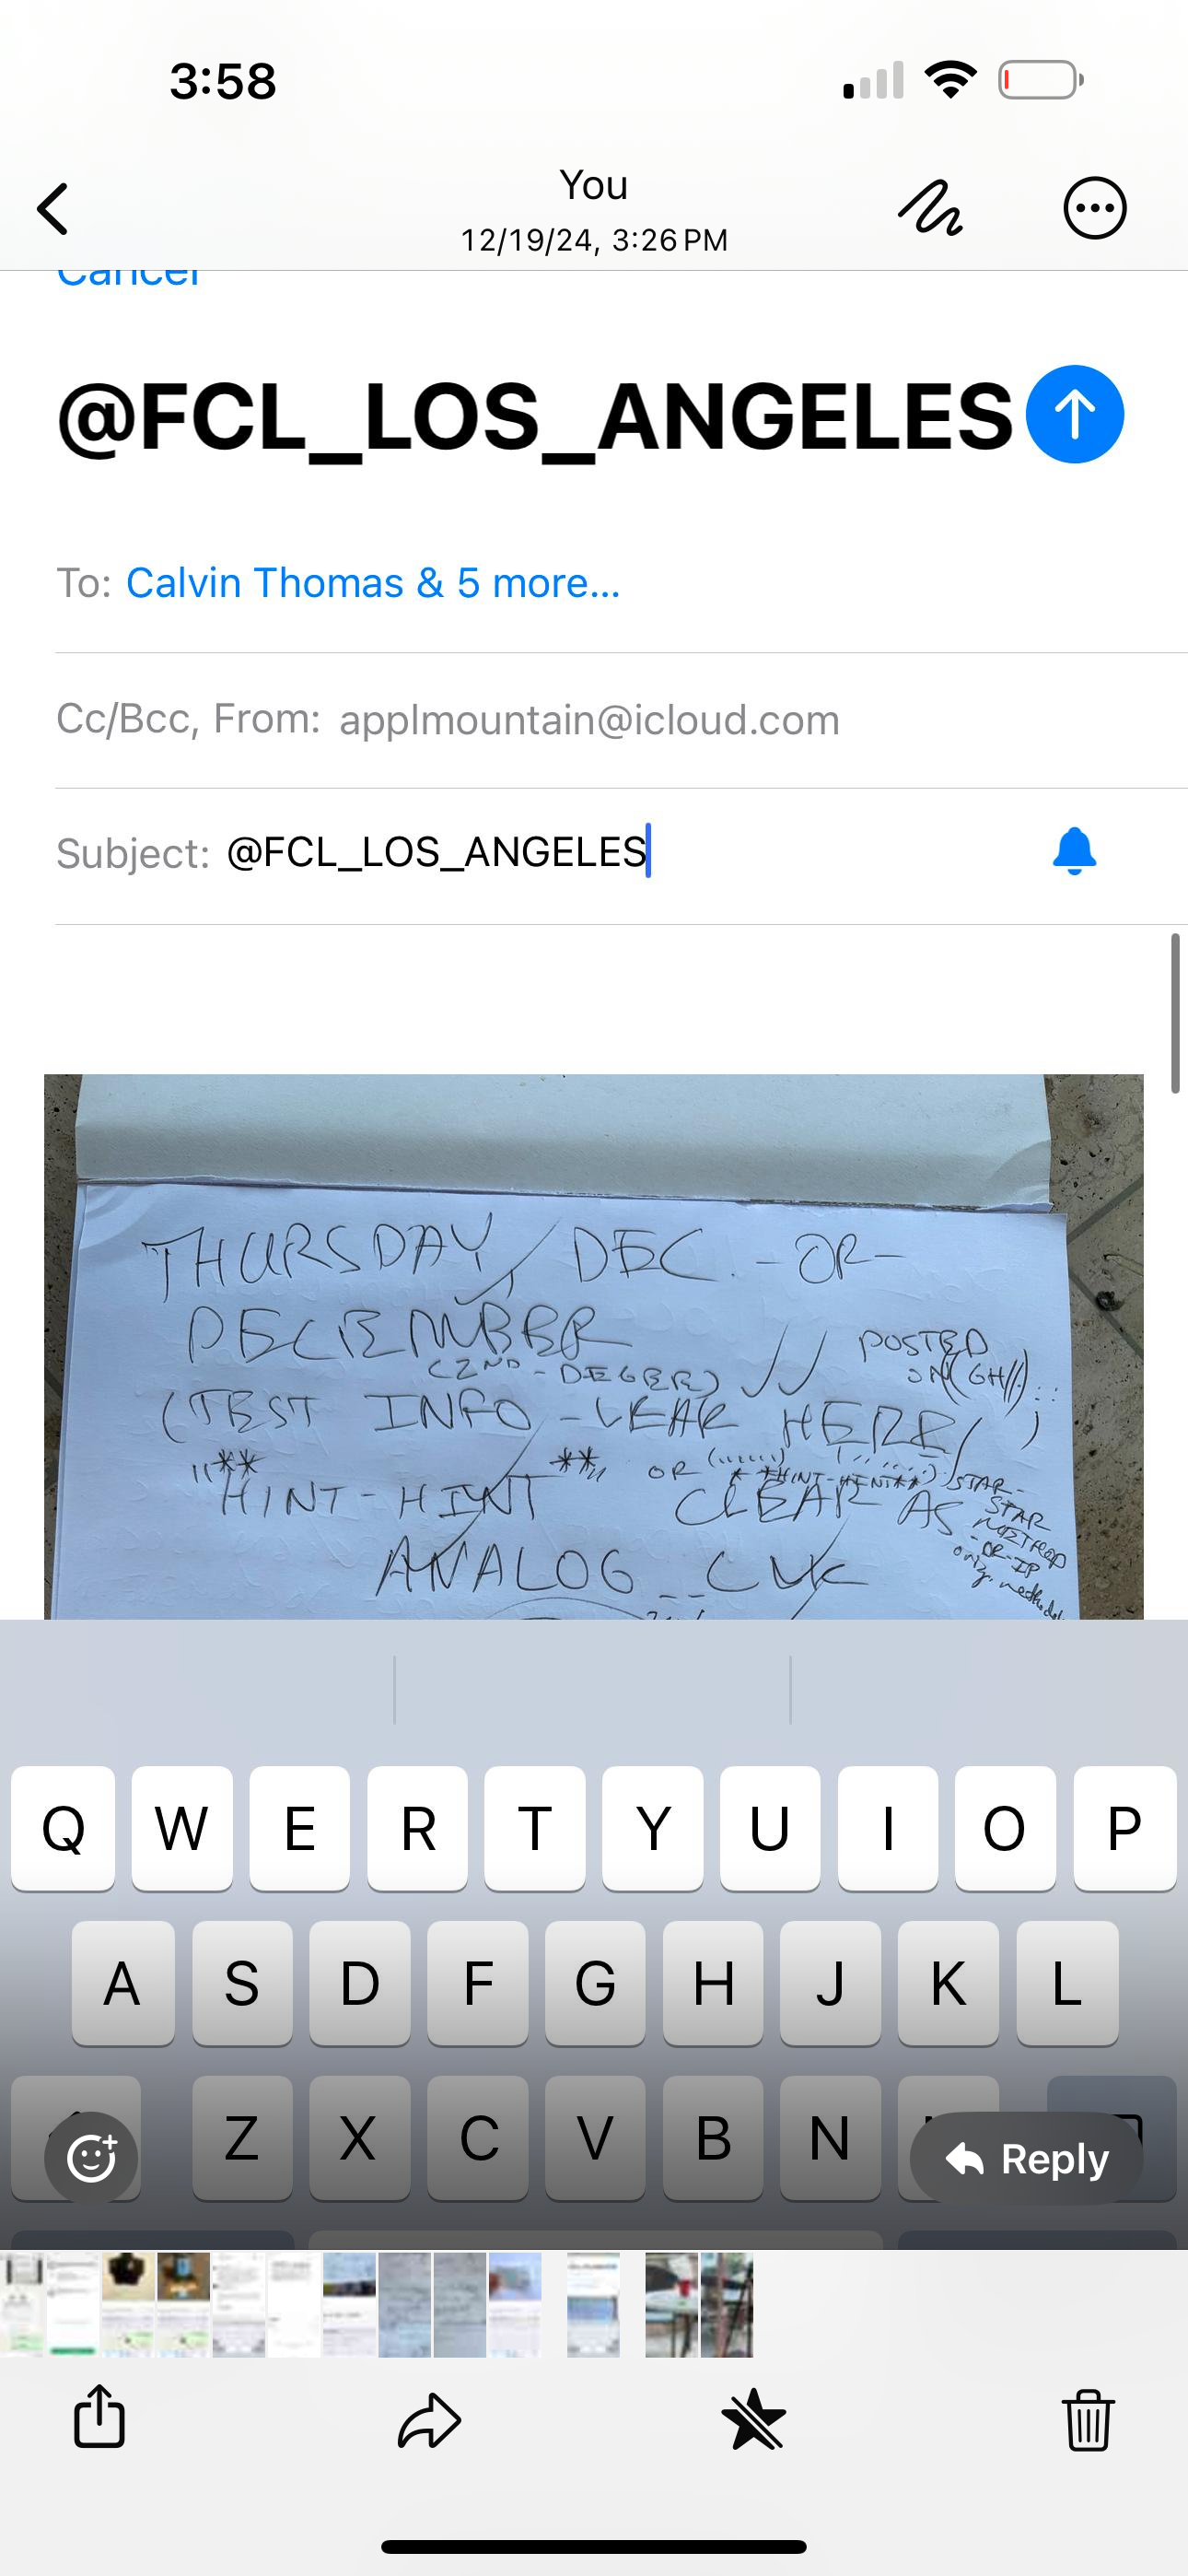 3:58
You
12/19/24, 3:26 PM
Cancel
@FCL_LOS_ANGELES
To: Calvin Thomas & 5 more...
Cc/Bcc, From: applmountain@icloud.com
Subject: @FCL_LOS_ANGELES
THURSDAY, DEC. -OR-
DECEMBER
(2ND-DEGREE)
POSTED
ON (GH//)
(TEST INFO - HERE/ )
"** **" OR
HINT-HINT CLEAR AS
STAR-
STAR
-OR-IP
orig.
ANALOG
Q W E R T Y U I O P
A S D F G H J K L
Z X C V B N
Reply